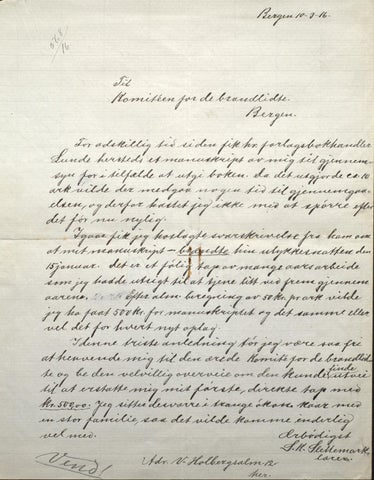 Bergen 10-3-16.
568/16
Til
Komiteen for de brandlidte.
Bergen.
For adskillig tid siden fik hr. forlagsbokhandler
Lunde herstede et manuskript av mig til gjennem-
syn for i tilfælde at utgi boken. Da det utgjorde ca 10
ark vilde der medgaa nogen tid til gjennemgaa-
elsen, og derfor hastet jeg ikke med at spörre efter
det för nu nylig.
Igaar fik jeg hoslagte svarskrivelse fra ham om
at mit manuskript – brændte hin ulykkesnatten den
15 januar. Det er et følelig tap av mange aars arbeide
som jeg hadde utsigt til at tjene litt ved frem gjennem
aarene. Efter alm. beregning av 50 kr. pr ark vilde
jeg ha faat 500 kr. for manuskriptet og det samme eller
vel det for hvert nyt oplag.
I denne triste anledning tör jeg være saa fri
at henvende mig til den ærede Komite for de brandlidte
og be den velvillig overveie om den kunde finde utvei
til at erstatte mig mit første, direkte tap med
Kr. 500,00. Jeg sitter desværre i trange økon. kaar med
en stor familie, saa det vilde komme inderlig
vel med.
Ærbödigst
S. K.
lærer.
Adr. V. Holbergsalm.
her.
Vend!